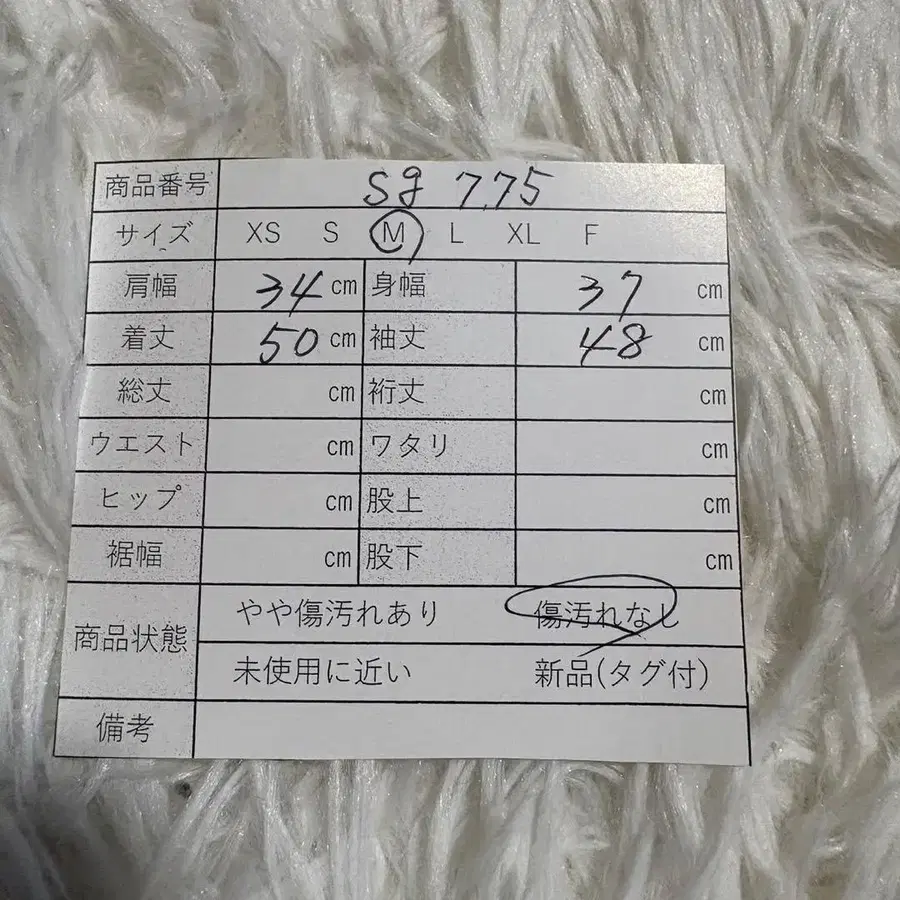 商品番号 sg 7.75
サイズ XS S M L XL F
肩幅 34 cm 身幅 37 cm
着丈 50 cm 袖丈 48 cm
総丈 cm 裄丈 cm
ウエスト cm ワタリ cm
ヒップ cm 股上 cm
裾幅 cm 股下 cm
商品状態 やや傷汚れあり 傷汚れなし
未使用に近い 新品(タグ付)
備考